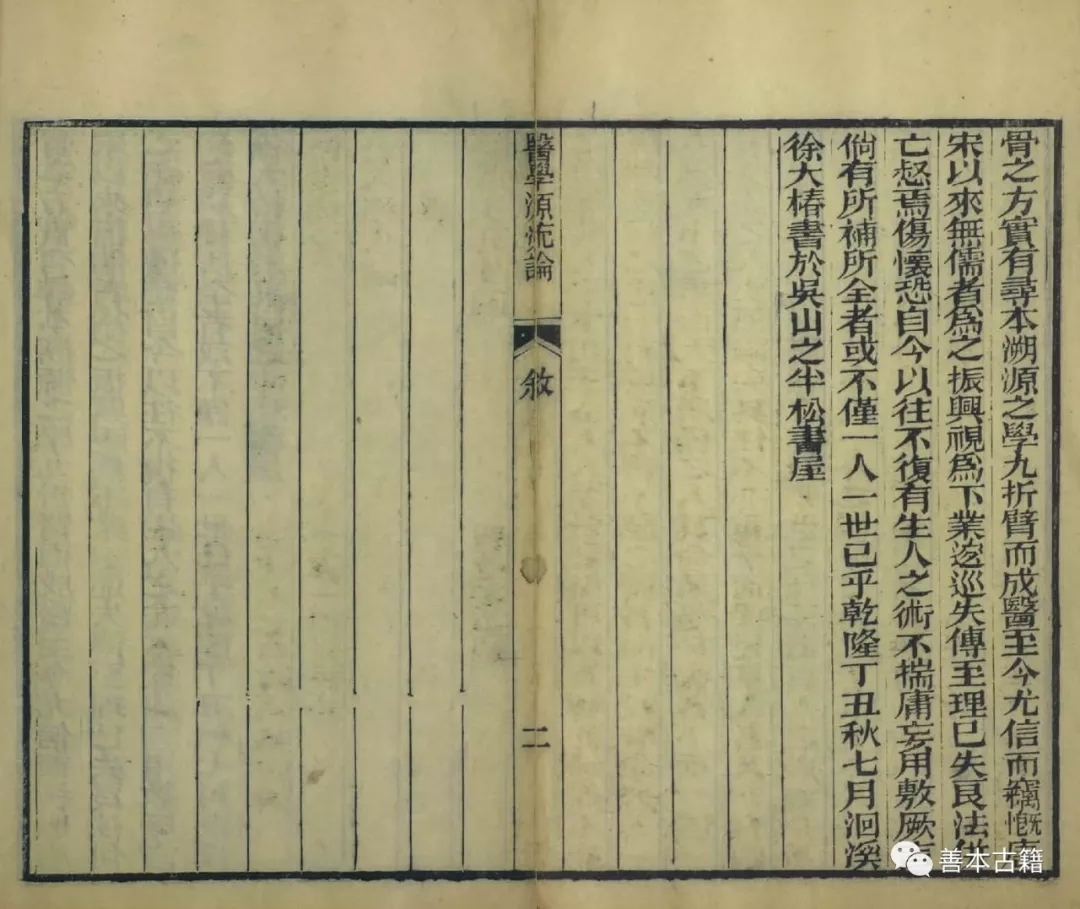 骨之方實有尋本溯源之學九折臂而成醫至今尤信而竊慨
宋以來無儒者為之振興視為下業逡巡失傳至理已失良法
亡惄焉傷懷恐自今以往不復有生人之術不揣庸妄用敷厥
倘有所補所全者或不僅一人一世已乎乾隆丁丑秋七月洄溪
徐大椿書於吳山之半松書屋
醫學源流論
敘
二
善本古籍